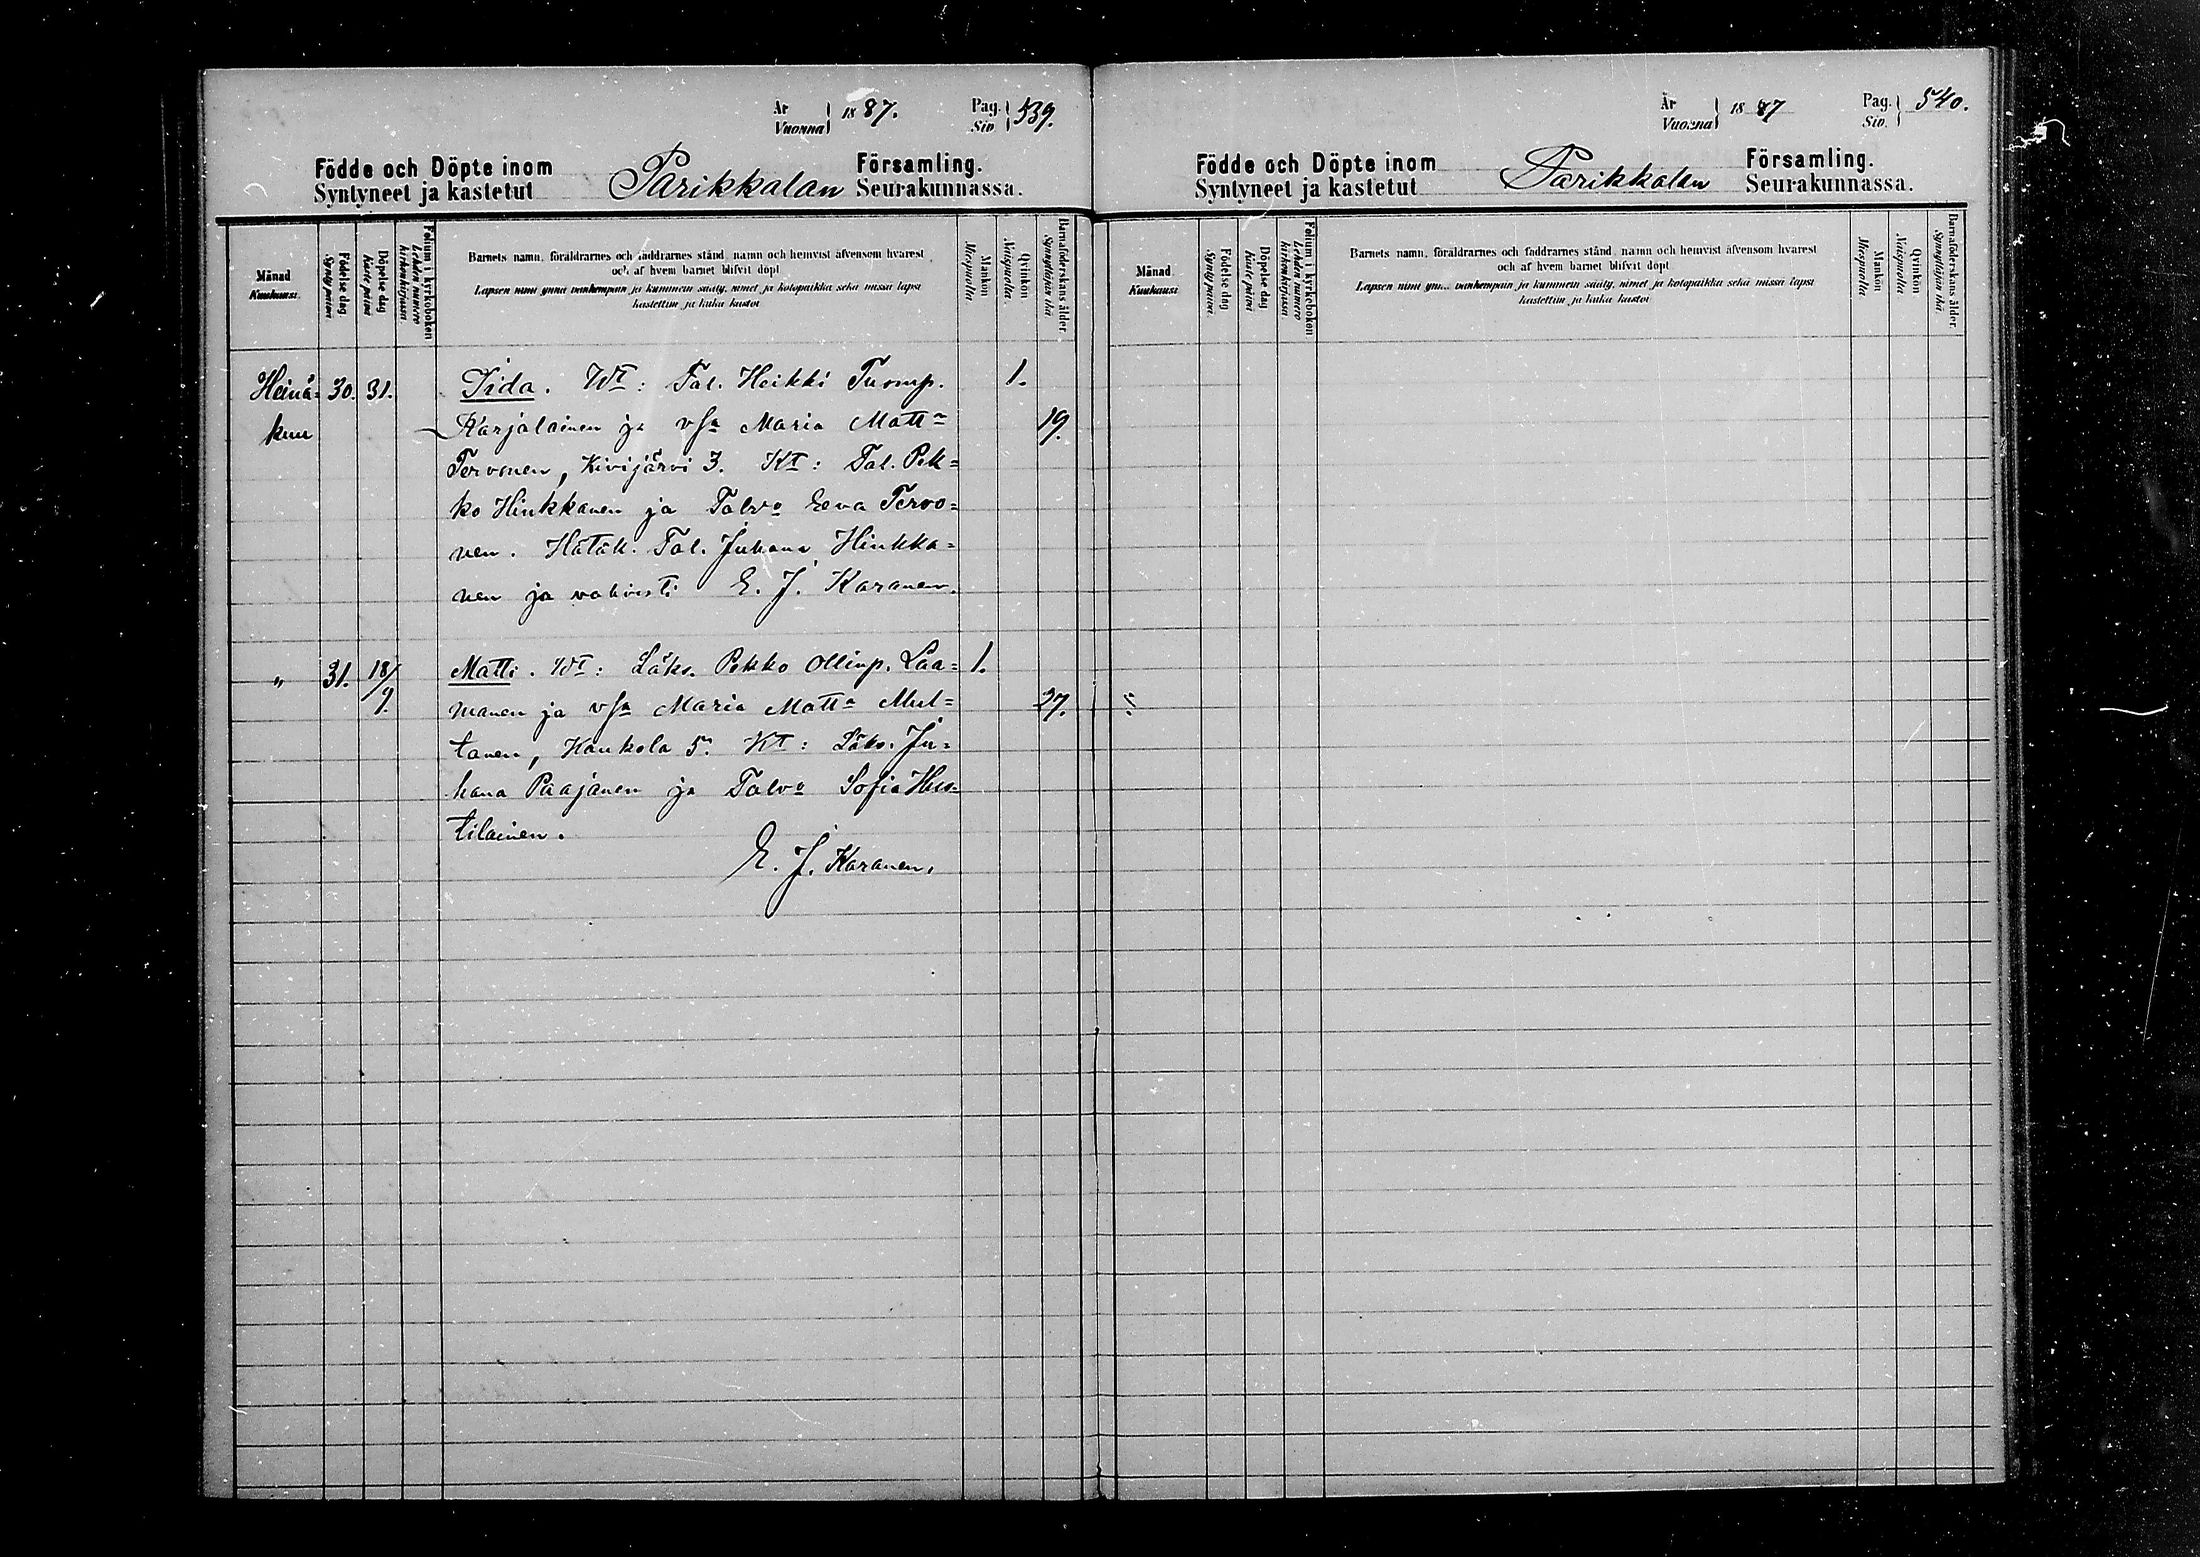 År
Vuonna 1887. Pag. Siv. 539.
Födde och Döpte inom Parikkalan Församling.
Syntyneet ja kastetut Seurakunnassa.
Månad Kuukausi.
Födelse dag Synty päivä
Döpelse dag Kaste päivä
Folium i kyrkoboken Lehden numero kirkonkirjassa.
Barnets namn, föräldrarnes och faddrarnes stånd, namn och hemvist äfvensom hvarest
och af hvem barnet blifvit döpt
Lapsen nimi ynnä vanhempain ja kummein sääty, nimet ja kotopaikka sekä missä lapsi
kastettiin ja kuka kastoi
Mankön Miespuolta.
Qvinkön Naispuolta.
Barnaföderskans ålder. Synnyttäjän ikä
Heinä- 30. 31. Iida. Wt: Tal. Heikki Tuomp. 1.
kuu Karjalainen ja vsa Maria Matta 19.
Tervonen, Kivijärvi 3. Kt: Tal. Pek=
ko Hinkkanen ja Talvo Eeva Tervo=
nen. Hätäk. Tal. Juhana Hinkka=
nen ja vahvisti E. J. Karanen.
" 31. 18/9. Matti. Wt: Läks. Pekko Ollinp. Laa= 1.
manen ja vsa Maria Matta Mul= 27.
tanen, Kaukola 5. Kt: Läks. Ju=
hana Paajanen ja Talvo Sofia Hus=
tilainen.
E. J. Karanen.
År
Vuonna 1887 Pag. Siv. 540.
Födde och Döpte inom Parikkalan Församling.
Syntyneet ja kastetut Seurakunnassa.
Månad Kuukausi
Födelse dag Synty päivä.
Döpelse dag Kaste päivä
Folium i kyrkoboken Lehden numero kirkonkirjassa
Barnets namn, föräldrarnes och faddrarnes stånd, namn och hemvist äfvensom hvarest
och af hvem barnet blifvit döpt
Lapsen nimi ynnä vanhempain ja kummein sääty, nimet ja kotopaikka sekä missä lapsi
kastettiin ja kuka kastoi
Mankön Miespuolta
Qvinkön Naispuolta
Barnaföderskans ålder. Synnyttäjän ikä